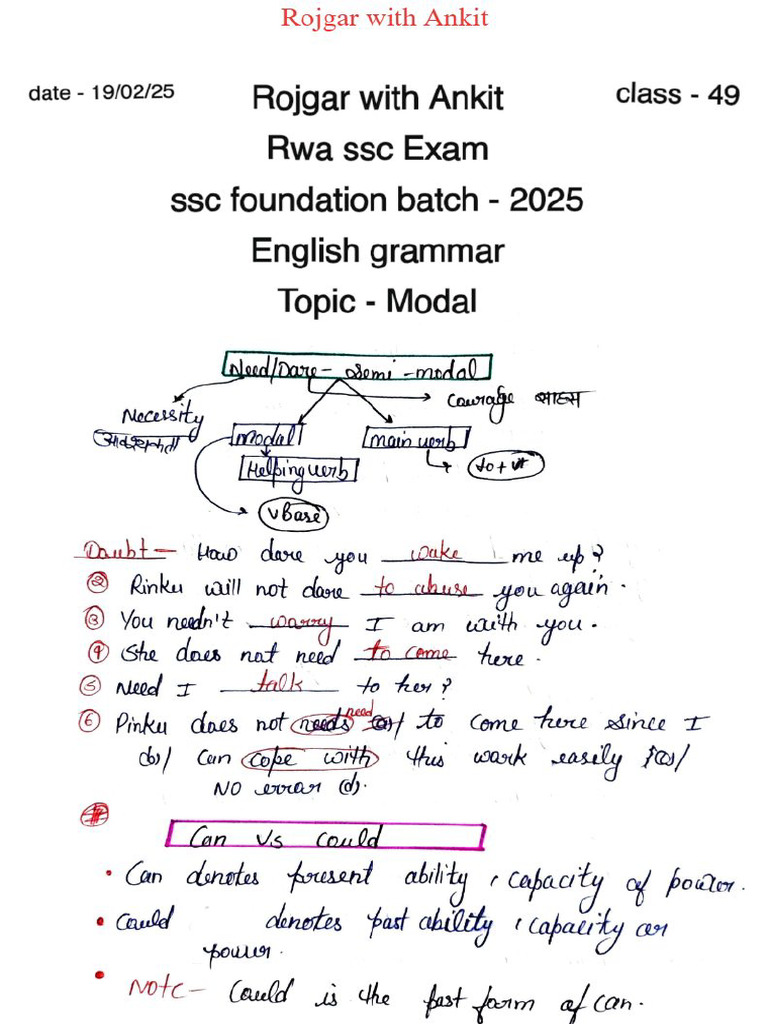 Rojgar with Ankit
date - 19/02/25
Rojgar with Ankit
class - 49
Rwa ssc Exam
ssc foundation batch - 2025
English grammar
Topic - Modal
Need/Dare - Semi-modal
Courage साहस
Necessity
आवश्यकता
modal
main verb
Helping verb
to + v1
vBase
Doubt - How dare you wake me up?
② Rinku will not dare to abuse you again.
③ You needn't worry I am with you.
④ She does not need to come here.
⑤ Need I talk to her?
⑥ Pinku does not needs need (a)/ to come here since I
(b)/ can cope with this work easily (c)/
NO error (d).
Can V.s Could
• Can denotes present ability, capacity of power.
• Could denotes past ability, capacity or
power.
• NOTE - Could is the past form of can.